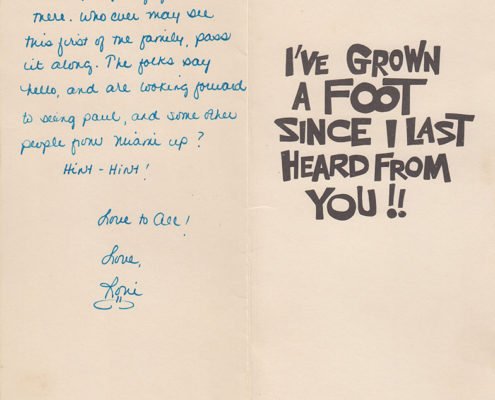 there. Who ever may see
this first of the family, pass
it along. The folks say
hello, and are looking forward
to seeing paul, and some other
people from Miami up?
Hint - Hint!
Love to All!
Love,
Roni
I'VE GROWN
A FOOT
SINCE I LAST
HEARD FROM
YOU!!